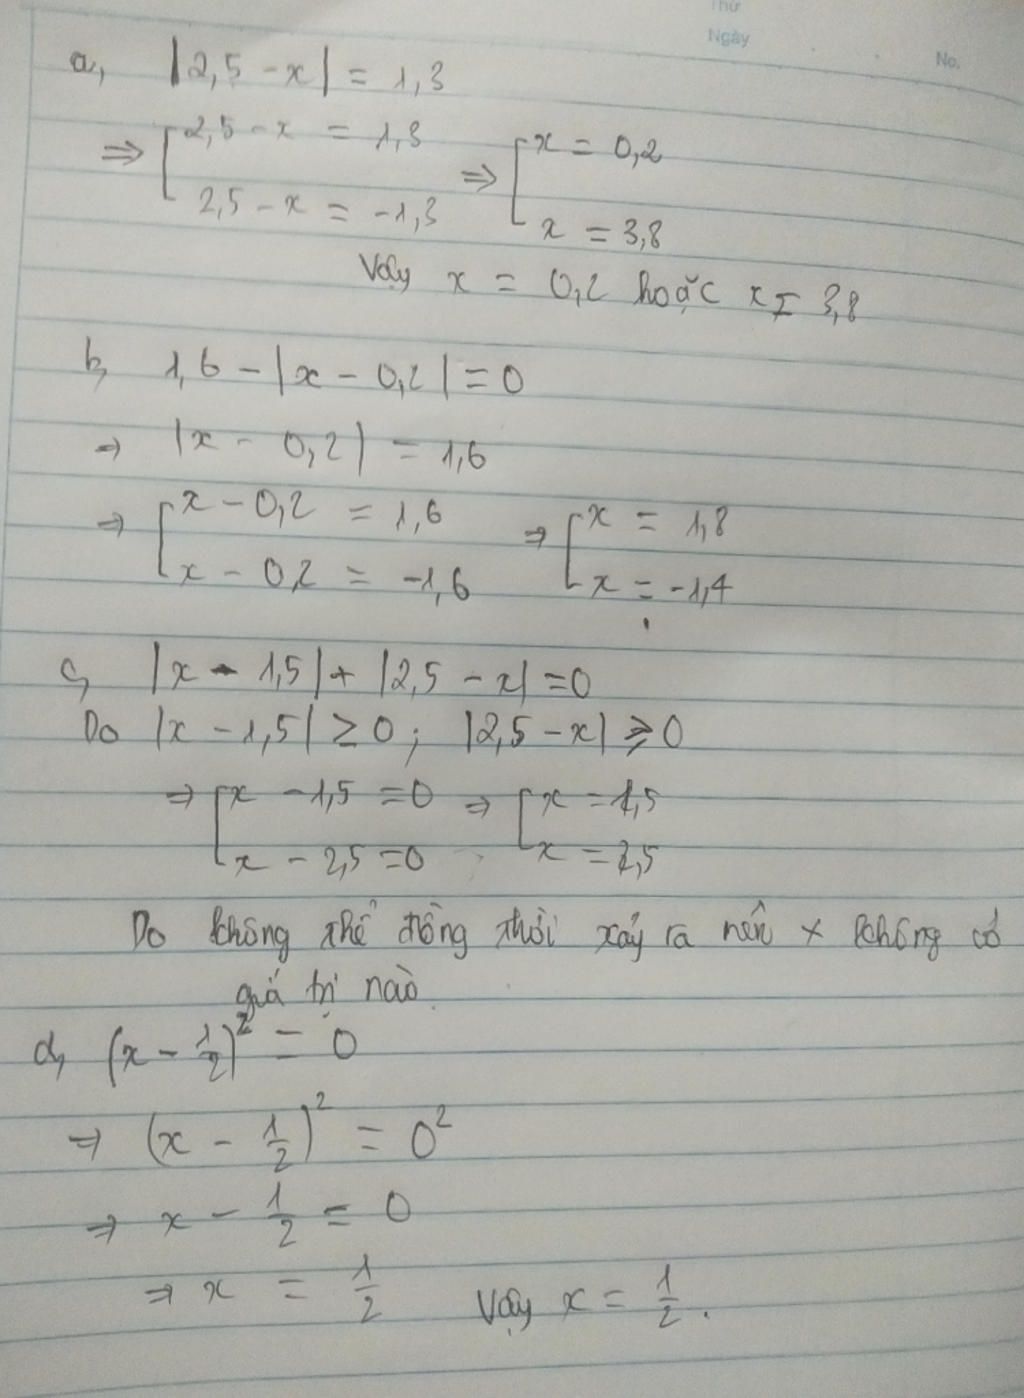 Thứ
Ngày
No.
a, |2,5 - x| = 1,3
⇒ [ 2,5 - x = 1,3 ⇒ [ x = 0,2
2,5 - x = -1,3 x = 3,8
Vậy x = 0,2 hoặc x = 3,8
b, 1,6 - |x - 0,2| = 0
⇒ |x - 0,2| = 1,6
⇒ [ x - 0,2 = 1,6 ⇒ [ x = 1,8
x - 0,2 = -1,6 x = -1,4
c, |x - 1,5| + |2,5 - x| = 0
Do |x - 1,5| ≥ 0; |2,5 - x| ≥ 0
⇒ [ x - 1,5 = 0 ⇒ [ x = 1,5
x - 2,5 = 0 x = 2,5
Do không thể đồng thời xảy ra nên x không có
giá trị nào.
d, (x - 1/2)² = 0
⇒ (x - 1/2)² = 0²
⇒ x - 1/2 = 0
⇒ x = 1/2 Vậy x = 1/2.